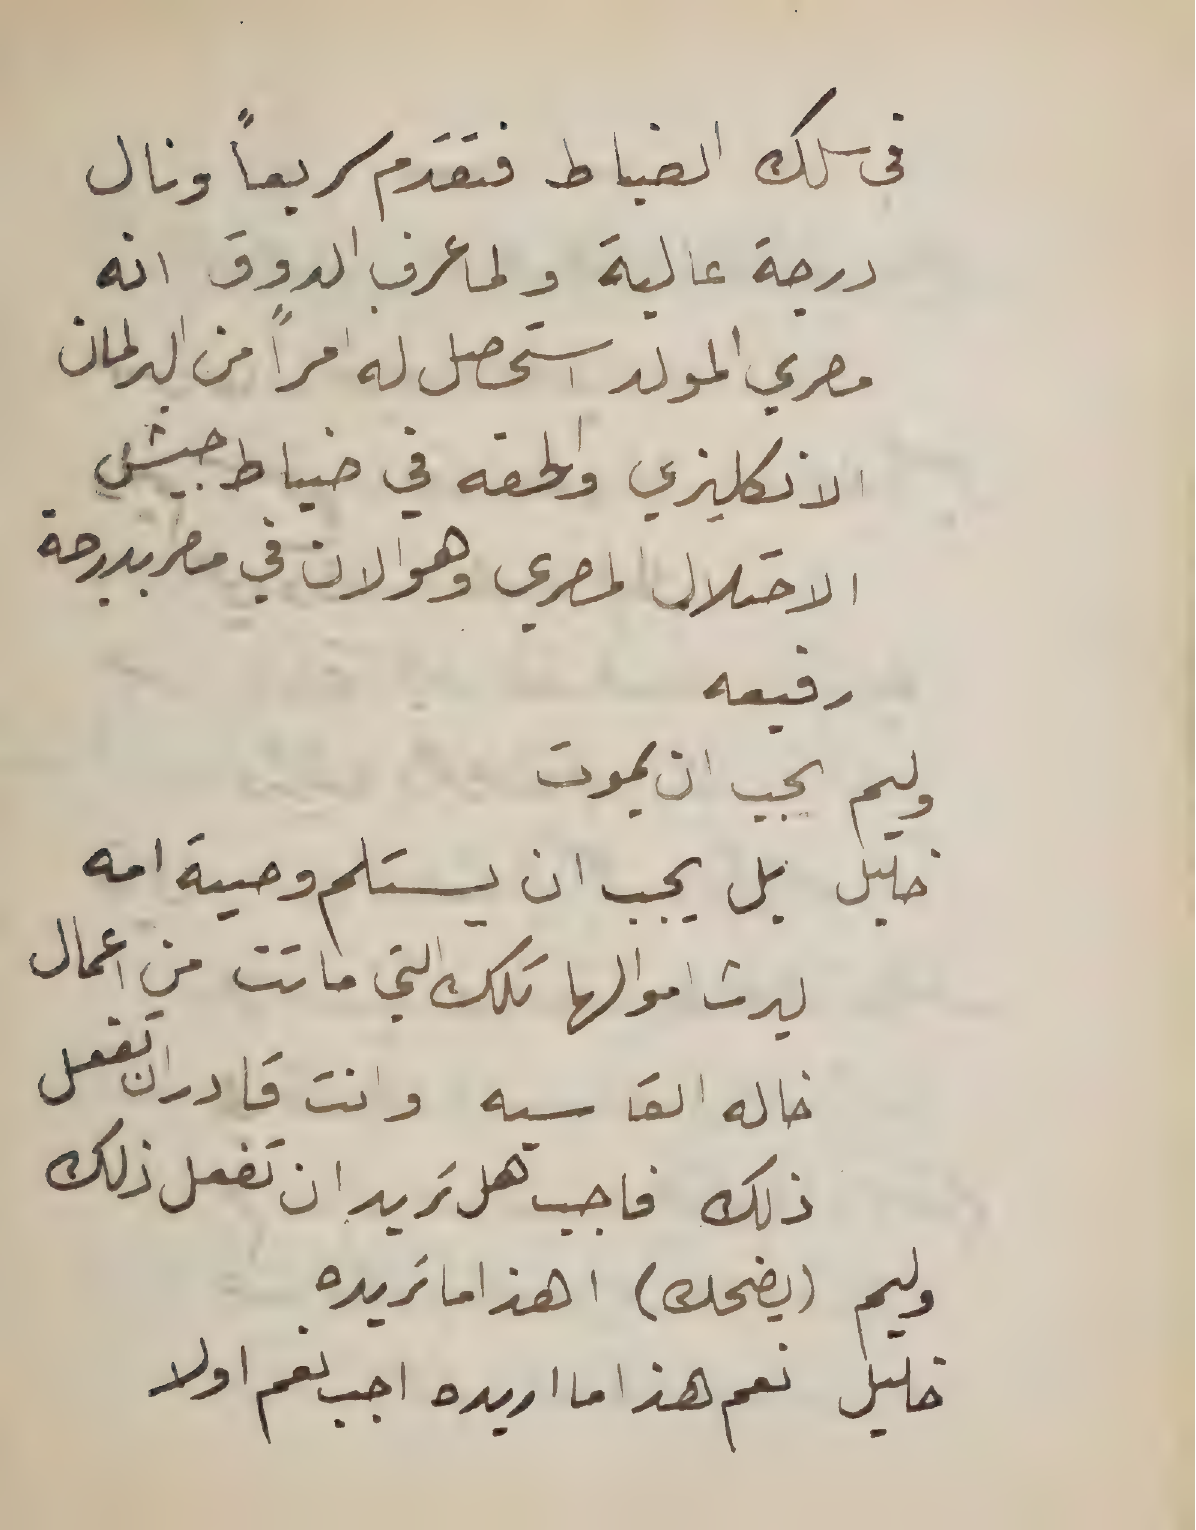 في سلك الضباط فتقدم سريعاً ونال
درجة عالية ولما عرف الدوق انه
مصري المولد استحصل له امراً من البرلمان
الانكليزي والحقه في ضباط جيش
الاحتلال المصري وهو الان في مصر بدرجة
رفيعه
وليم يجب ان يموت
خليل بل يجب ان يستلم وصية امه
ليرث اموالها تلك التي ماتت من اعمال
خاله القاسيه وانت قادر ان تفعل
ذلك فاجب هل تريد ان تفعل ذلك
وليم (يضحك) اهذا ما تريده
خليل نعم هذا ما اريده اجب نعم اولا